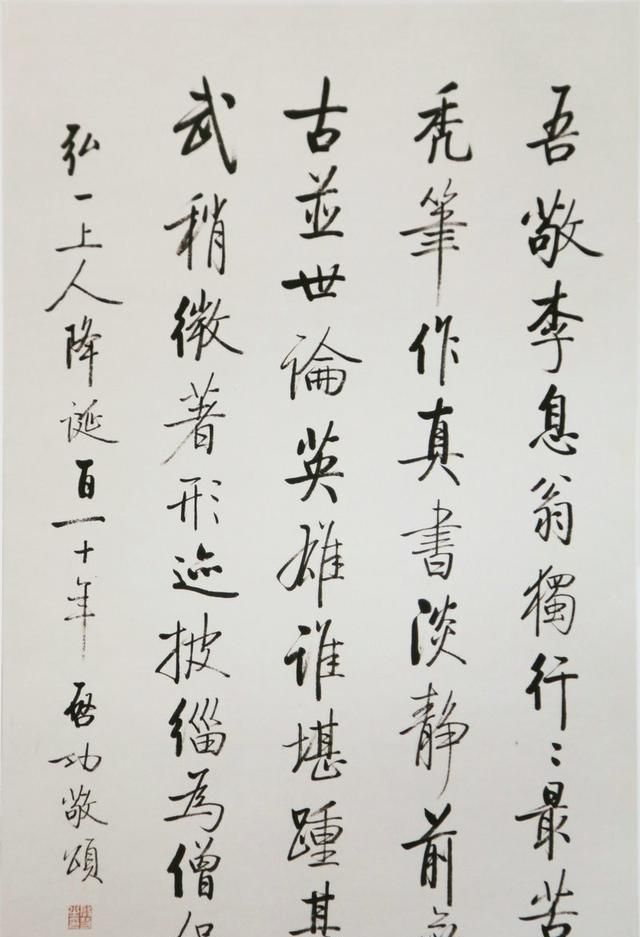 吾敬李息翁獨行〻最苦
禿筆作真書淡靜前
古並世論英雄誰堪踵其
武稍微著形迹披緇為僧侶
弘一上人降誕百一十年 啓功敬頌